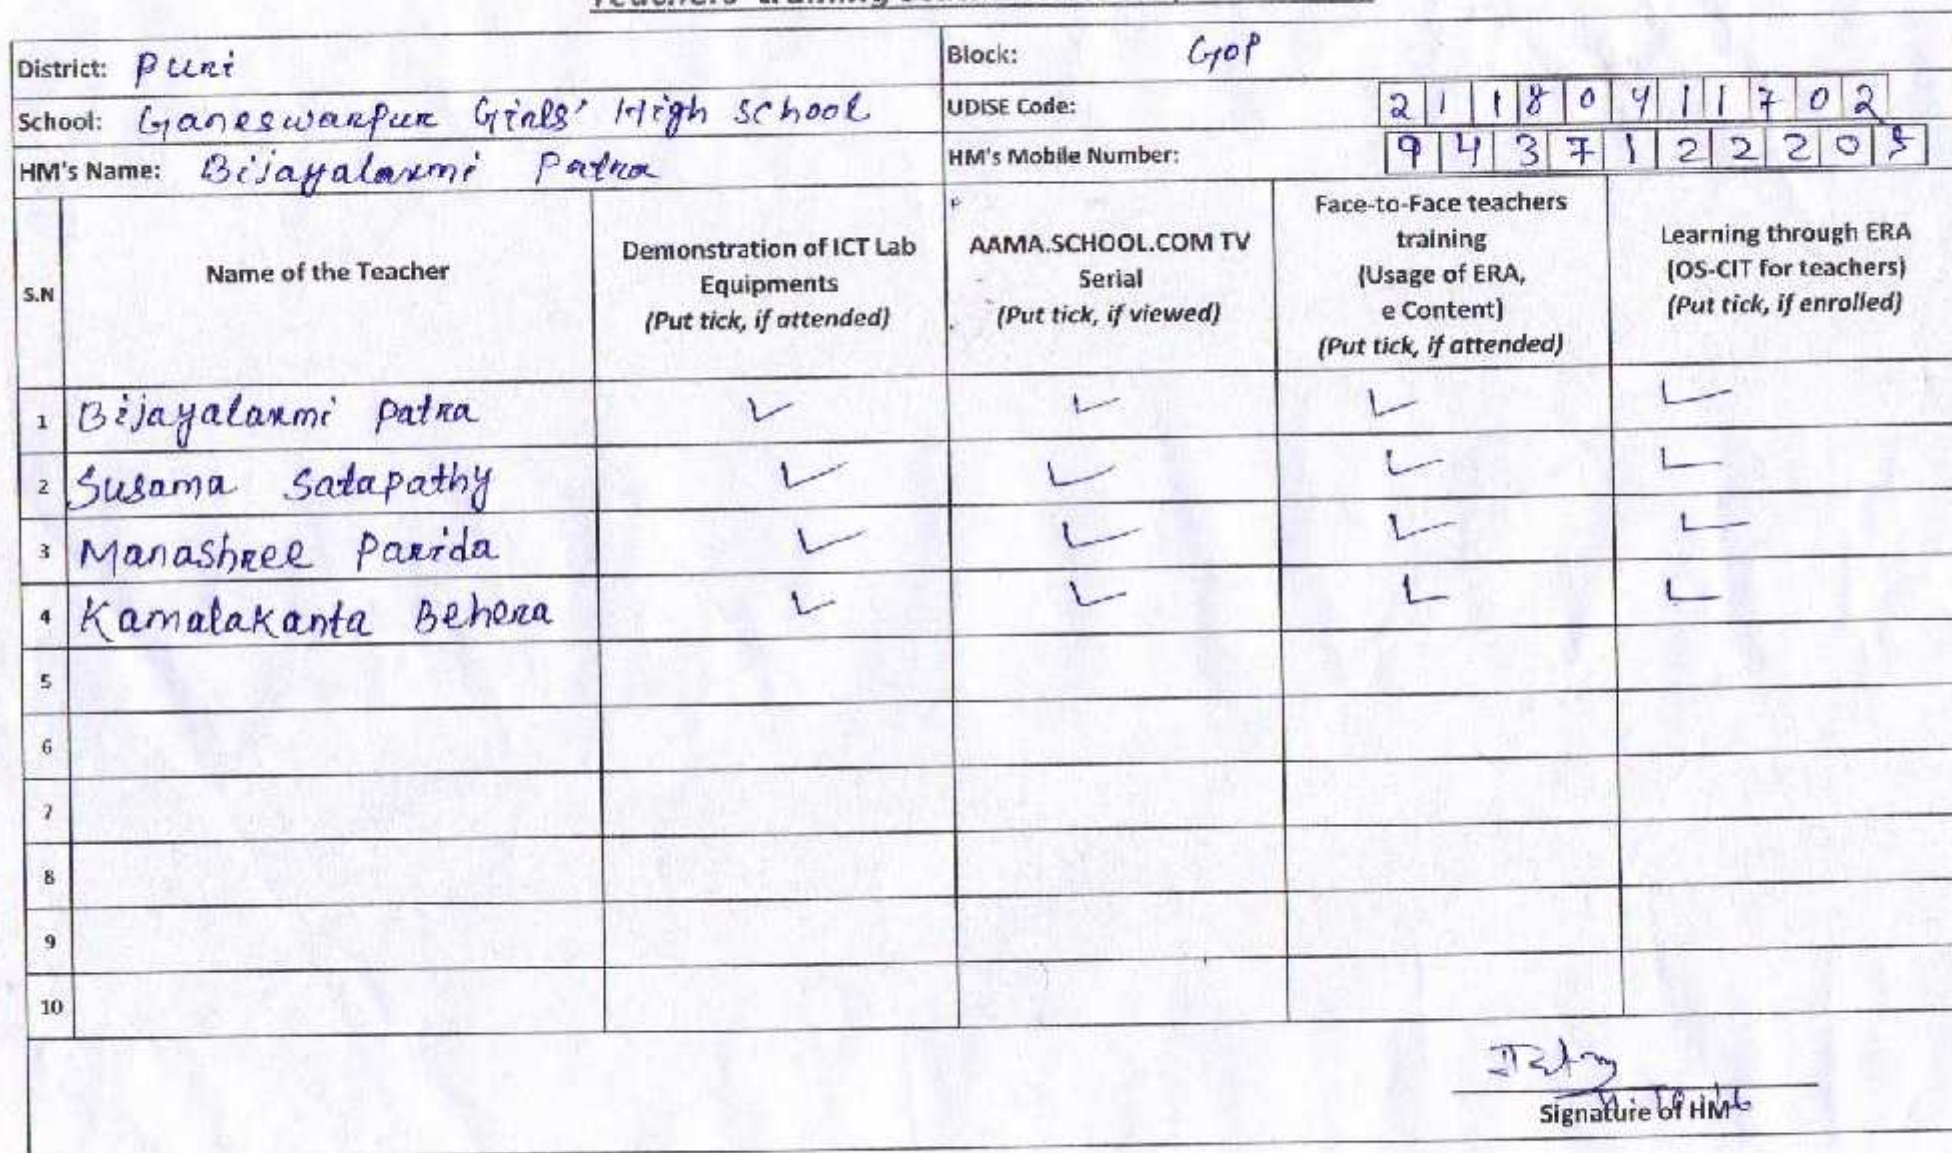 District: Puri
Block: GOP
School: Ganeswarpur Girls' High School
UDISE Code: 21180411702
HM's Name: Bijayalaxmi Patra
HM's Mobile Number: 943712220
S.N
Name of the Teacher
Demonstration of ICT Lab
Equipments
(Put tick, if attended)
AAMA.SCHOOL.COM TV
Serial
(Put tick, if viewed)
Face-to-Face teachers
training
(Usage of ERA,
e Content)
(Put tick, if attended)
Learning through ERA
(OS-CIT for teachers)
(Put tick, if enrolled)
1 Bijayalaxmi Patra ✓ ✓ ✓ ✓
2 Susama Satapathy ✓ ✓ ✓ ✓
3 Manashree Parida ✓ ✓ ✓ ✓
4 Kamalakanta Behera ✓ ✓ ✓ ✓
5
6
7
8
9
10
Signature of HM